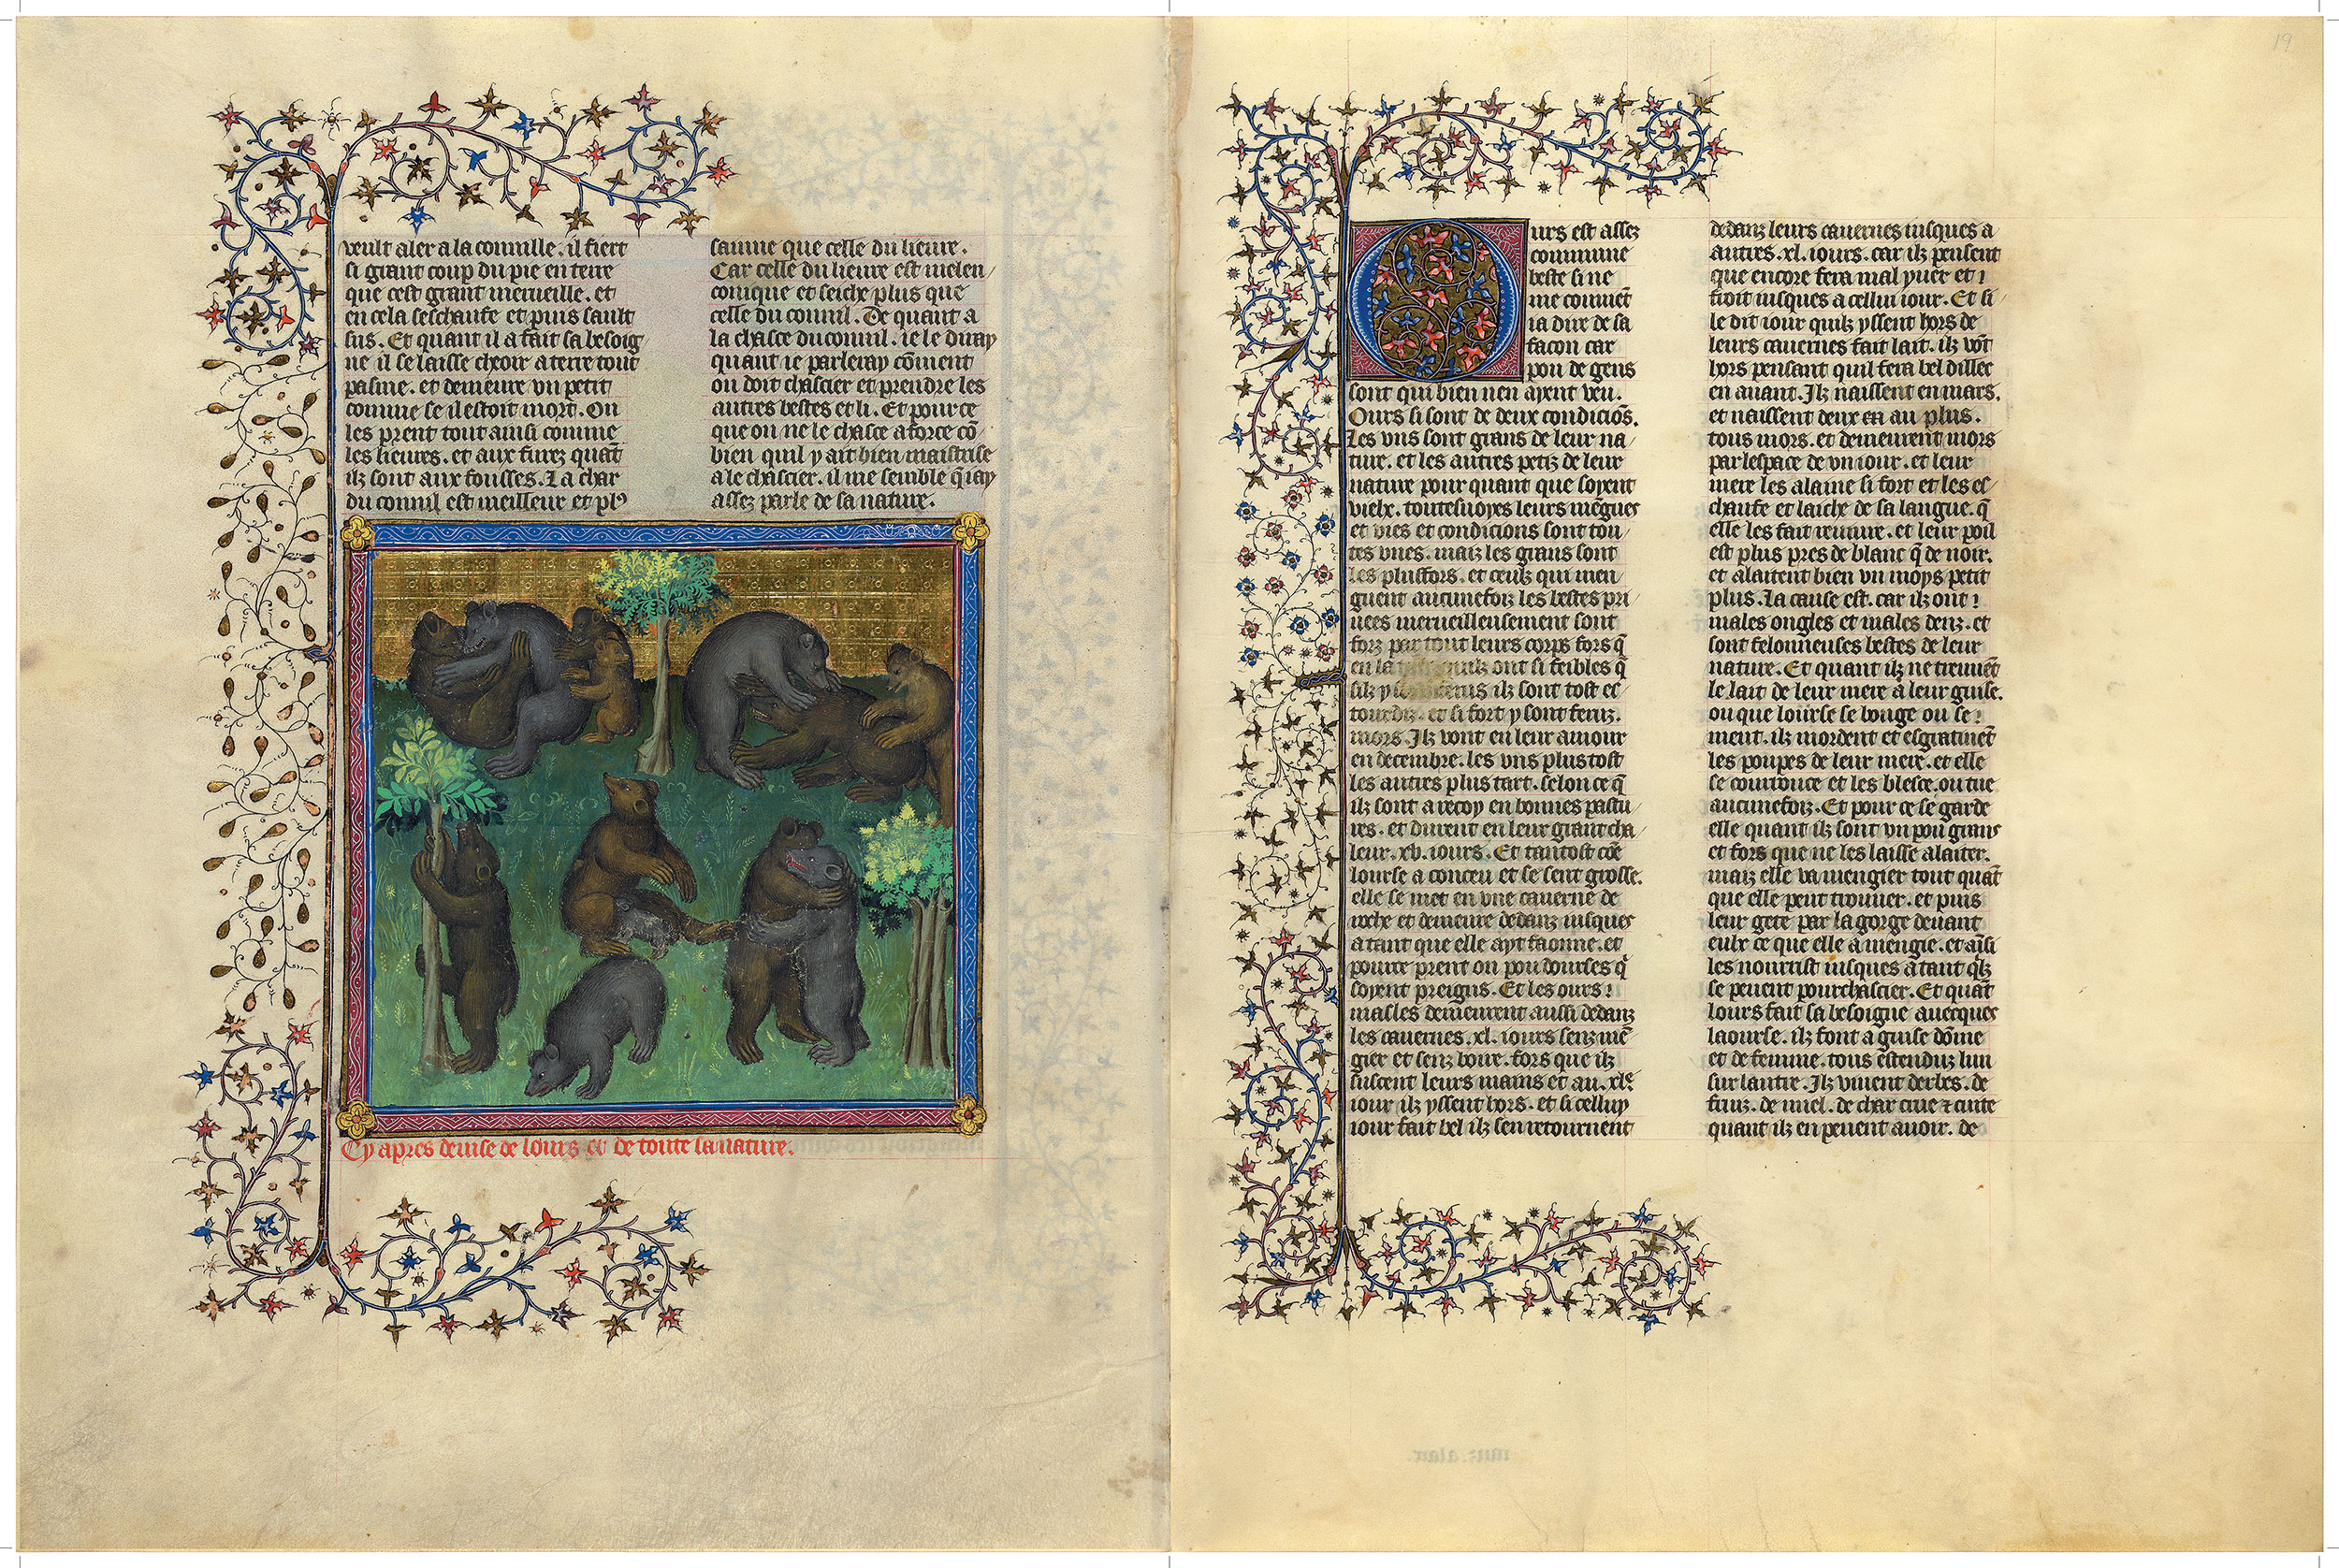 veult aler a la connille. il fiert
si grant coup du pie en terre
que cest grant merueille. et
en cela seschaufe et puis sault
sus. Et quant il a fait sa besoig
ne il se laisse cheoir a terre tout
pasme. et demeure vn petit
comme se il estoit mort. On
les prent tout ainsi comme
les lieures. et aux furez quāt
ilz sont aux fousses. La char
du connil est meilleur et plꝰ
saunne que celle du lieure.
Car celle du lieure est melen
conique et seiche plus que
celle du connil. De quant a
la chasce du connil. ie le diray
quant ie parleray cōment
on doit chascier et prendre les
autres bestes et li. Et pour ce
que on ne le chasce a force cō
bien quil y ait bien maistrise
a le chascier. il me semble q̄ iay
assez parle de sa nature.
Cy apres deuise de lours et de toute sa nature.
19
Ours est assez
commune
beste si ne
me conuiēt
ia dire de sa
facon car
pou de gens
sont qui bien nen ayent veu.
Ours si sont de deux condiciōs.
Les vns sont grans de leur na
ture. et les autres petiz de leur
nature pour quant que soyent
vielx. toutesuoyes leurs mēgues
et vies et condicions sont tou
tes vnes. maiz les grans sont
les plus fors. et ceulz qui men
guent aucunefoiz les bestes pri
uees merueilleusement sont
forz par tout leurs corps fors q̄
en la quilz ont si feibles q̄
silz y sont ilz sont tost es
tourdiz. et si fort y sont feruz.
mors. Ilz vont en leur amour
en decembre. les vns plus tost
les autres plus tart. selon ce q̄
ilz sont a recoy en bonnes pastu
res. et durent en leur grant cha
leur. xv. iours. Et tantost cōe
lourse a conceu et se sent grosse.
elle se met en vne cauerne de
roche et demeure dedanz iusques
a tant que elle ayt faonne. et
pource prent on pou dourses q̄
soyent preigns. Et les ours
masles demeurent aussi dedanz
les cauernes. xl. iours senz mē
gier et senz boire. fors que ilz
suscent leurs mains et au. xle.
iour ilz yssent hors. et si celluy
iour fait bel ilz sen retournent
dedanz leurs cauernes iusques a
autres. xl. iours. car ilz pensent
que encore fera mal yuer et
froit iusques a cellui iour. Et si
le dit iour quilz yssent hors de
leurs cauernes fait lait. ilz vōt
hors pensant quil fera bel dillec
en auant. Ilz naissent en mars.
et naissent deux au plus.
tous mors. et demeurent mors
par lespace de vn iour. et leur
mere les alaine si fort et les es
chaufe et laiche de sa langue. q̄
elle les fait reuiure. et leur poil
est plus pres de blanc q̄ de noir.
et alaitent bien vn moys petit
plus. La cause est. car ilz ont
males ongles et males denz. et
sont felonneuses bestes de leur
nature. Et quant ilz ne treuuēt
le lait de leur mere a leur guise.
ou que lourse se bouge ou se
ment. ilz mordent et esgratinēt
les poupes de leur mere. et elle
se courouce et les blesce. ou tue
aucunefoiz. Et pour ce se garde
elle quant ilz sont vn pou grans
et fors que ne les laisse alaiter.
maiz elle va mengier tout quāt
que elle peut trouuer. et puis
leur gete par la gorge deuant
eulx ce que elle a mengie. et aīsi
les nourrist iusques a tant q̄lz
se peuent pourchascier. Et quāt
lours fait sa besoigne auecques
laourse. ilz font a guise dōme
et de femme. tous estenduz lun
sur lautre. Ilz viuent derbes. de
fruiz. de miel. de char crue ⁊ cuite
quant ilz en peuent auoir. de